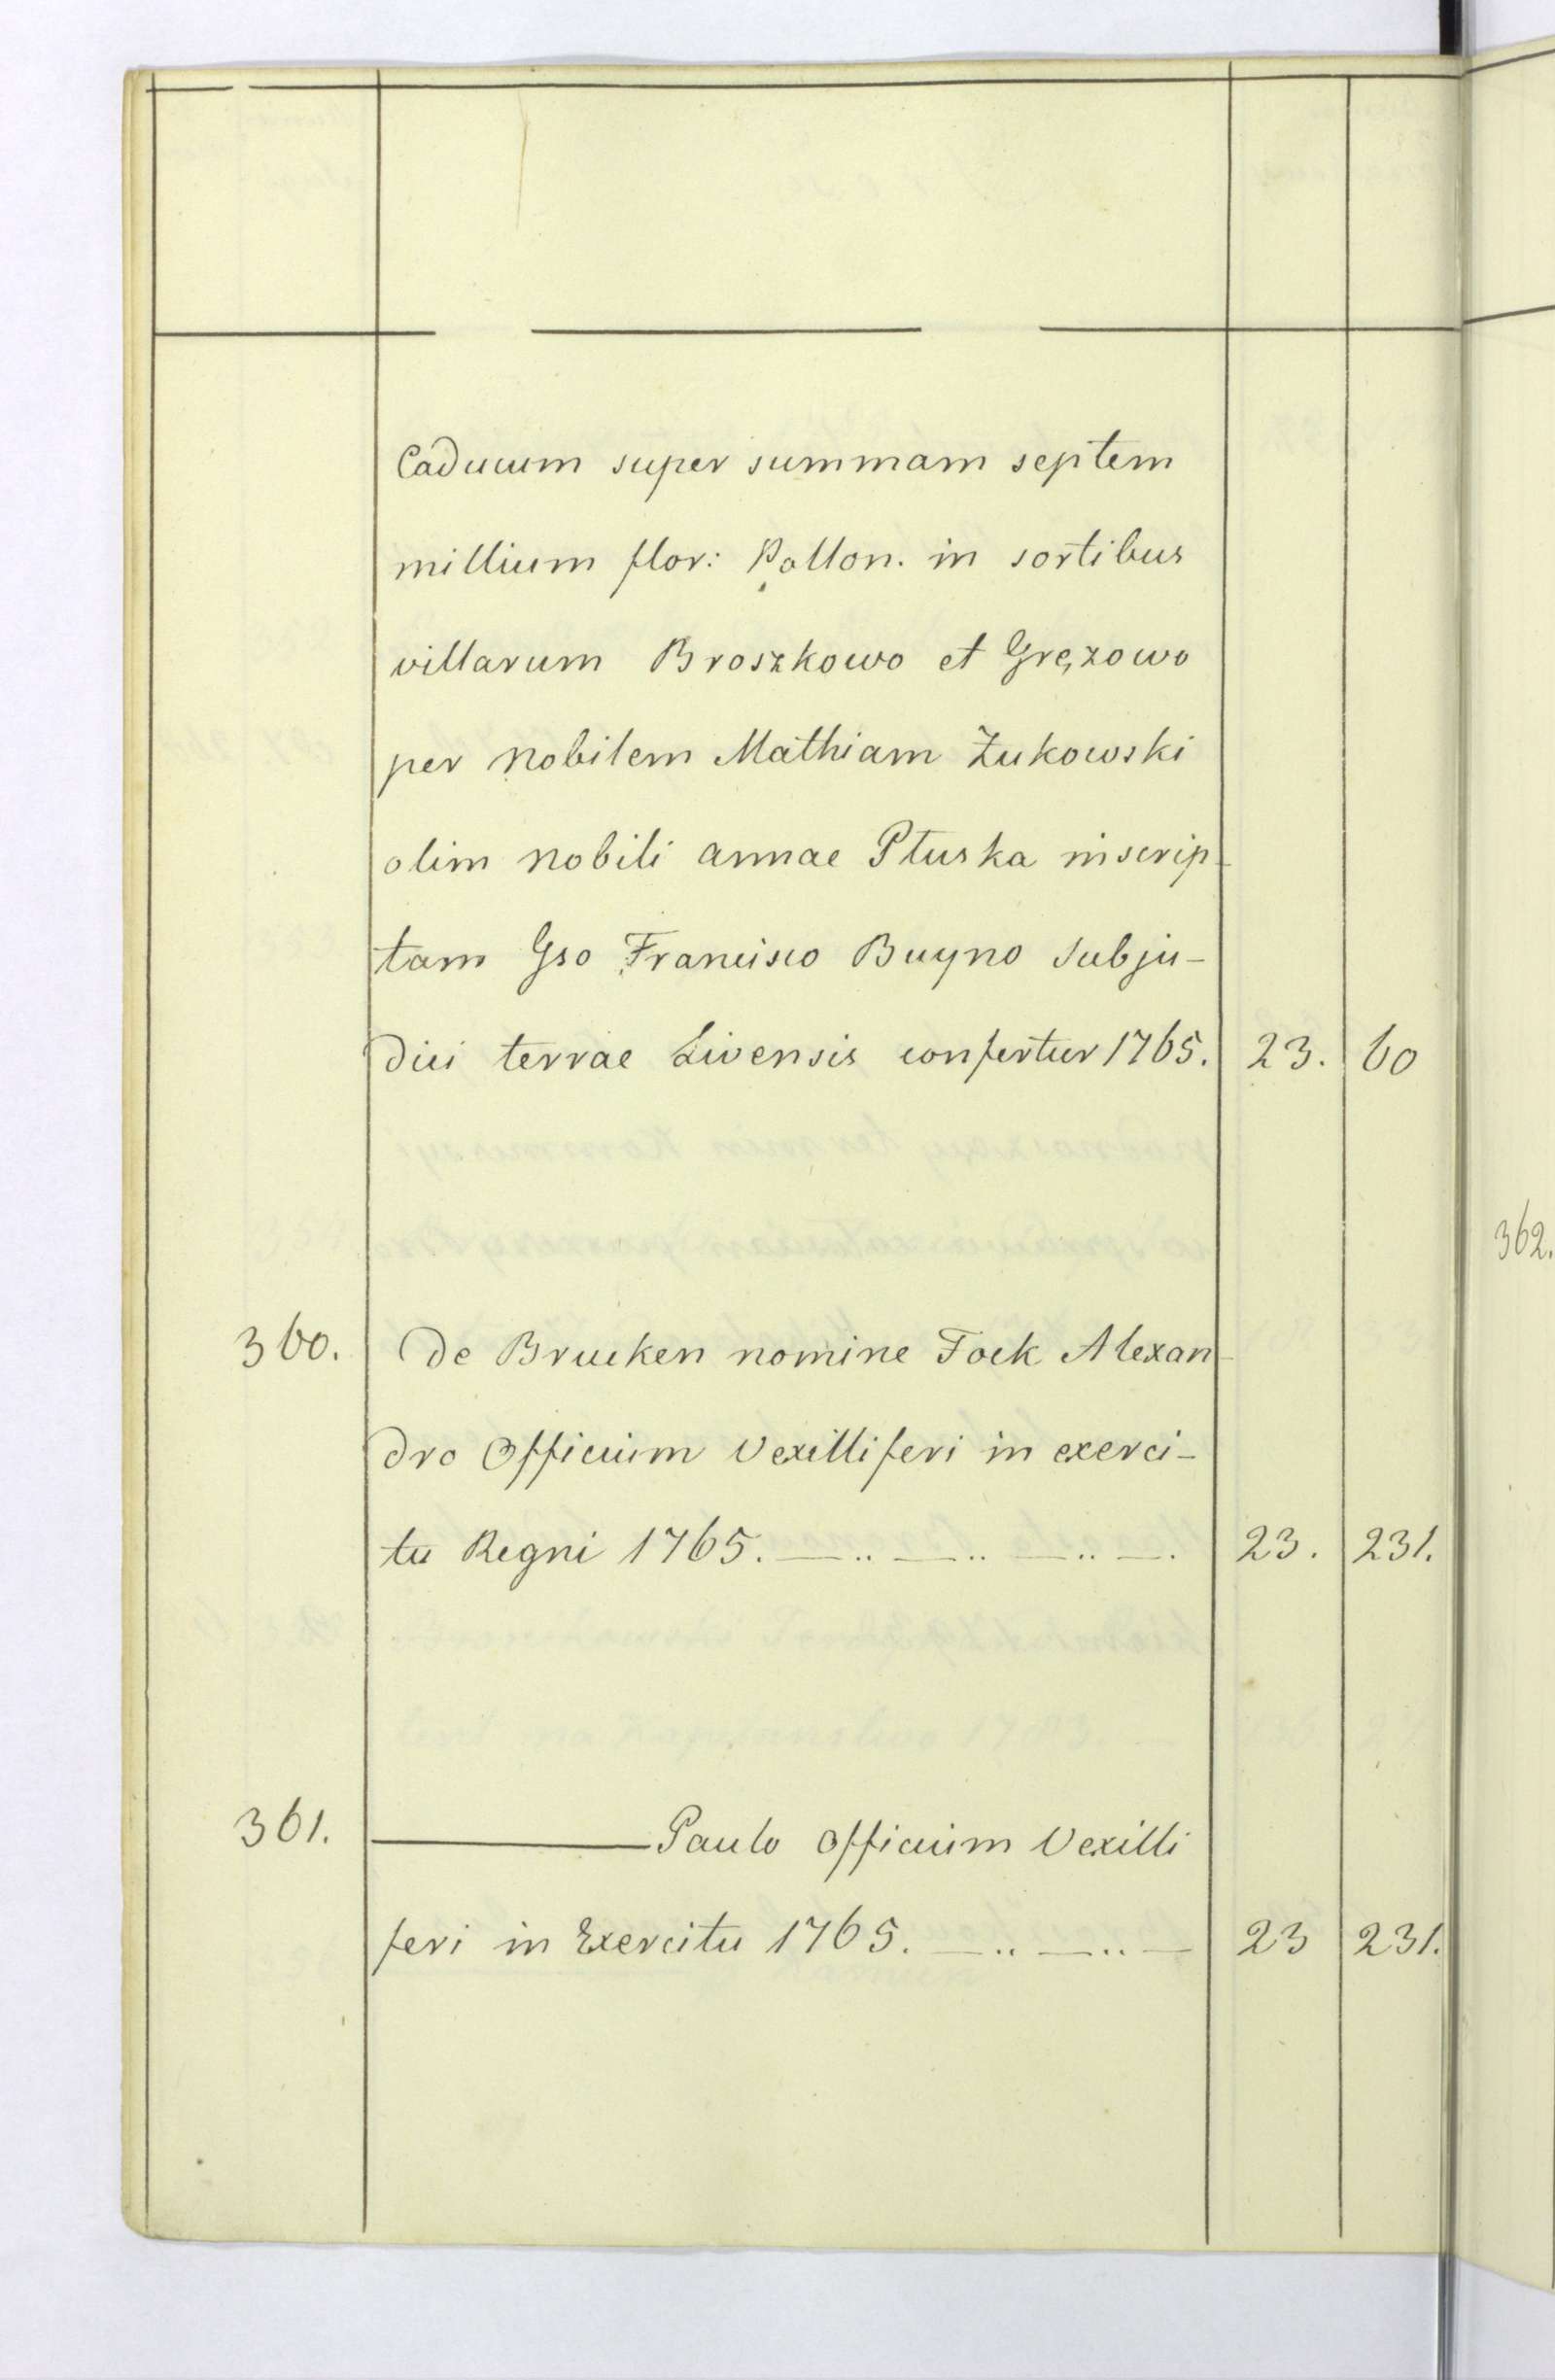 Caducum super summam septem
millium flor: Pollon. in sortibus
villarum Broszkowo et Grężowo
per Nobilem Mathiam Żukowski
olim Nobili Annae Ptuska inscrip-
tam Gso Francisco Buyno Subju-
dici terrae Livensis confertur 1765. 23. 60
360. De Brucken nomine Fock Alexan-
dro Officium Vexilliferi in exerci-
tu Regni 1765. —..—..—..—. 23. 231.
361. ——— Paulo Officium Vexilli
feri in Exercitu 1765. —..—..— 23 231.
362.